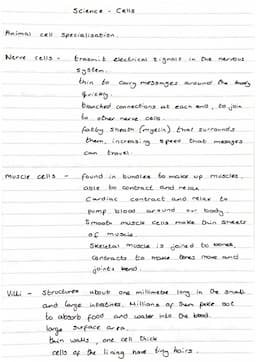 Science - Cells
Animal cell specialisation.
Nerve cells - transmit electrical signals in the nervous
system.
thin to carry messages around the body
quickly.
branched connections at each end, to join
to other nerve cells.
fatty sheath (myelin) that surrounds
them, increasing speed that messages
can travel.
muscle cells - found in bundles to make up muscles.
able to contract and relax.
Cardiac contract and relax to
pump blood around our body.
Smooth muscle cells make thin sheets
of muscle.
Skeletal muscle is joined to bones,
contracts to make bones move and
joints bend.
Villi - Structures about one millimetre long in the small
and large intestines. Millions of them poke out
to absorb food and water into the blood.
large surface area.
thin walls, one cell thick
cells of the lining have tiny hairs.